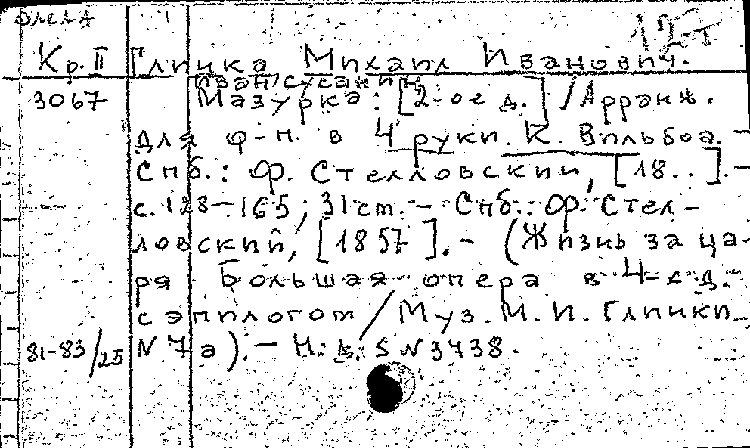 Кр. II Глинка Михаил Иванович.
Иван Сусанин
3067 Мазурка: [2-ое д.] / Арранж.
для ф-п. в 4 руки. К. Вильбоа. —
Спб.: Ф. Стелловский, [18..]. —
с. 128-165; 31 cm. — Спб.: Ф. Стел-
ловский, [1857]. — (Жизнь за ца-
ря Большая опера в 4-х д.
с эпилогом / Муз. М. И. Глинки
81-83/25 N 7а). — Н. д.: S N 3438.